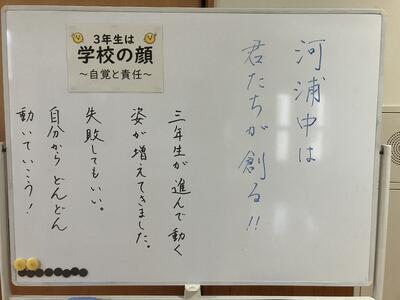 3年生は
学校の顔
～自覚と責任～
河浦中は
君たちが創る!!
三年生が進んで動く
姿が増えてきました。
失敗してもいい。
自分からどんどん
動いていこう!